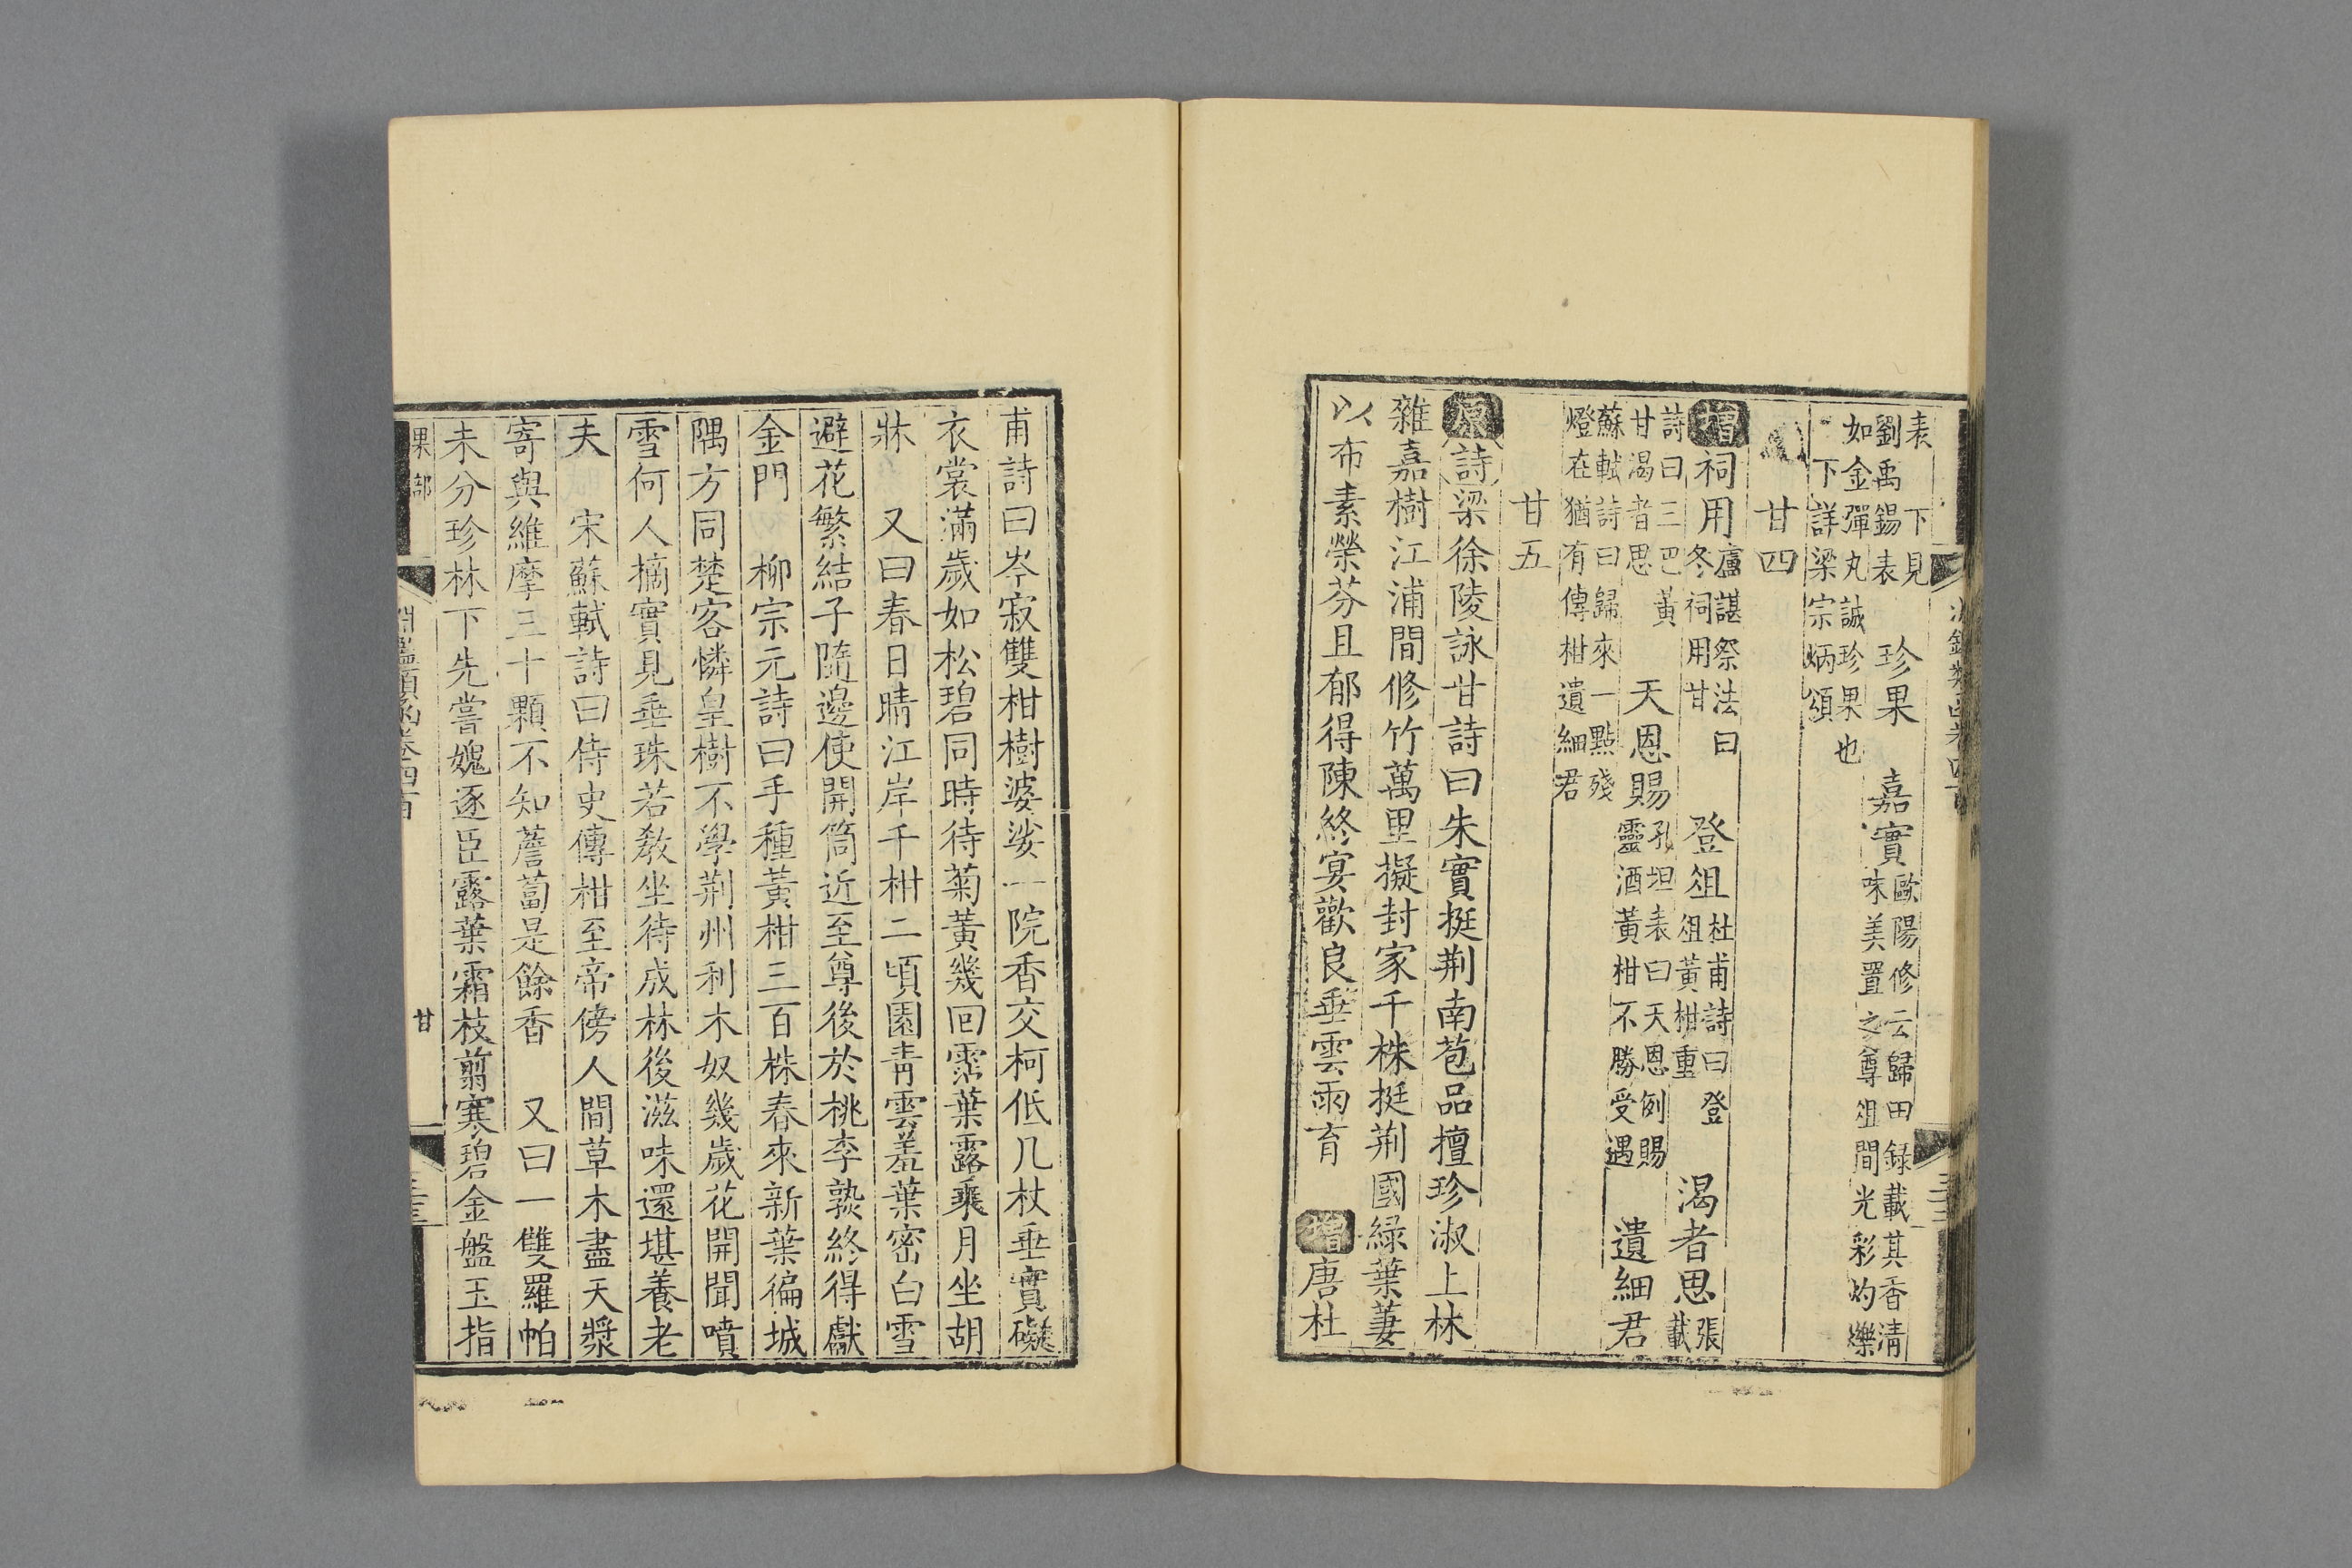 表　下見
劉禹錫表　珍果　嘉實歐陽修云歸田録載其香清
如金彈丸誠珍果也　味美置之尊俎間光彩灼爍
下詳梁宗炳頌
甘四
增祠用盧諶祭法曰冬祠用甘　登俎杜甫詩曰登俎黃柑重　渴者思張載
詩曰三巴黃甘渴者思　天恩賜孔坦表曰天恩例賜靈酒黃柑不勝受遇　遺細君
蘇軾詩曰歸來一點殘燈在猶有傳柑遺細君
甘五
原詩梁徐陵詠甘詩曰朱實挺荆南苞品擅珍淑上林
雜嘉樹江浦間修竹萬里擬封家千株挺荆國緑葉萋
以布素榮芬且郁得陳終宴歡良垂雲雨育　增唐杜
甫詩曰岑寂雙柑樹婆娑一院香交柯低几杖垂實礙
衣裳滿歲如松碧同時待菊黃幾回霑葉露乘月坐胡
牀　又曰春日晴江岸千柑二頃園靑雲羞葉密白雪
避花繁結子隨邊使開筒近至尊後於桃李熟終得獻
金門　柳宗元詩曰手種黃柑三百株春來新葉徧城
隅方同楚客憐皇樹不學荆州利木奴幾歲花開聞噴
雪何人摘實見垂珠若敎坐待成林後滋味還堪養老
夫　宋蘇軾詩曰侍史傳柑至帝傍人間草木盡天漿
寄與維摩三十顆不知薝蔔是餘香　又曰一雙羅帕
未分珍林下先嘗媿逐臣露葉霜枝翦寒碧金盤玉指
果部　淵鑑類函卷四百　甘